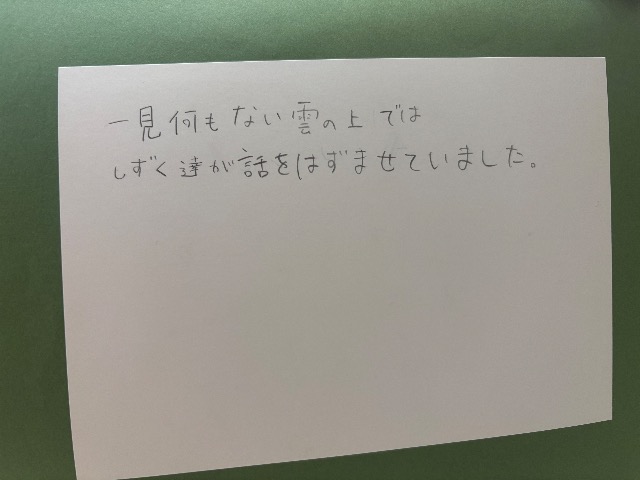 一見何もない雲の上では
しずく達が話をはずませていました。